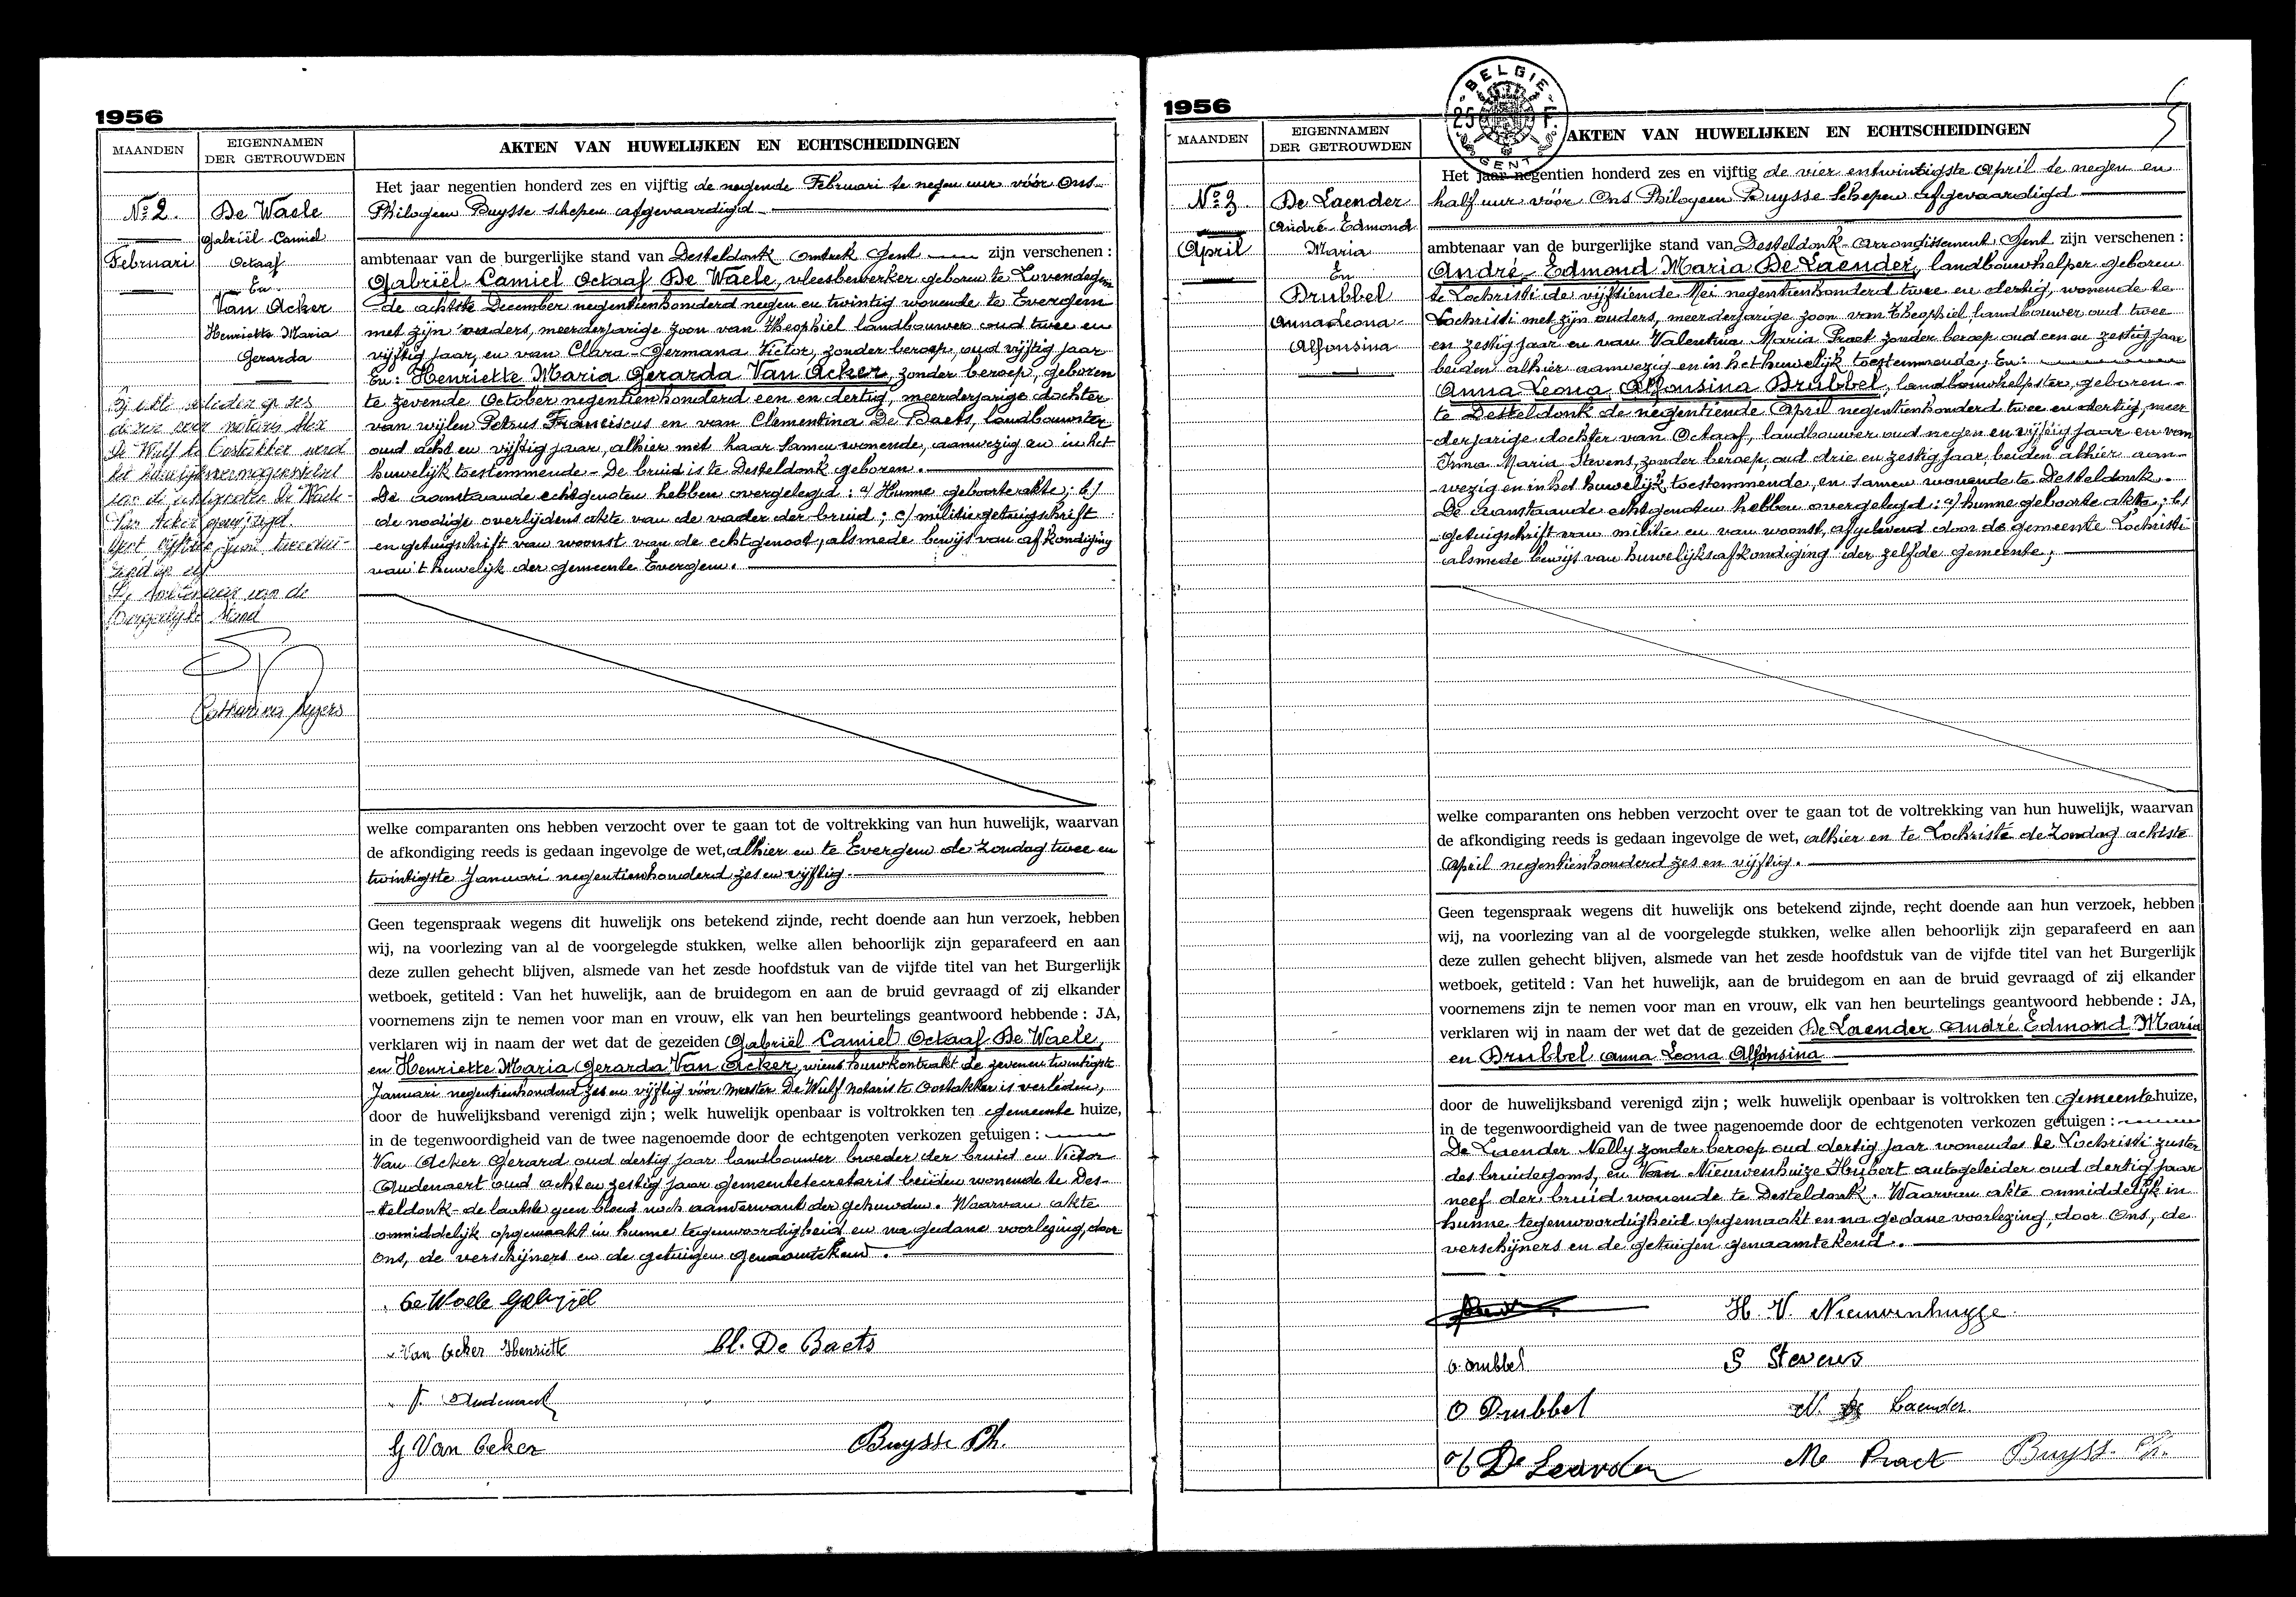 1956
MAANDEN
EIGENNAMEN
DER GETROUWDEN
AKTEN VAN HUWELIJKEN EN ECHTSCHEIDINGEN
No 2.
Februari
De Waele
Gabriël Camiel
Octaaf
En
Van Acker
Henriette Maria
Gerarda
Bij akte verleden op zes
door notaris
De Wulf te Oostakker werd
het huwelijksvermogenstelsel
van de echtgenoten De Waele-
Van Acker gewijzigd.
Gent vijftien juni tweedui-
zend en elf
De Ambtenaar van de
Burgerlijke Stand
Het jaar negentien honderd zes en vijftig de negende Februari te negen uur vóór Ons
Philogeen Buysse schepen afgevaardigd
ambtenaar van de burgerlijke stand van Desteldonk omtrek Gent zijn verschenen :
Gabriël Camiel Octaaf De Waele, vleesbewerker geboren te Lovendegem
de achtste December negentienhonderd negen en twintig wonende te Evergem
met zijn ouders, meerderjarige zoon van Theophiel landbouwer oud twee en
vijftig jaar, en van Clara Germana Victor, zonder beroep, oud vijftig jaar
En: Henriette Maria Gerarda Van Acker, zonder beroep, geboren
te zevende October negentienhonderd een en dertig, meerderjarige dochter
van wijlen Petrus Franciscus en van Clementina De Baets, landbouwster
oud acht en vijftig jaar, alhier met haar samenwonende, aanwezig en in het
huwelijk toestemmende - De bruid is te Desteldonk geboren.
De aanstaande echtgenoten hebben overgelegd : a/ Hunne geboorteakte; b/
de nodige overlijdens akte van de vader der bruid ; c/ militiegetuigschrift
en getuigschrift van woonst van de echtgenoot, alsmede bewijs van afkondiging
van 't huwelijk der gemeente Evergem.
welke comparanten ons hebben verzocht over te gaan tot de voltrekking van hun huwelijk, waarvan
de afkondiging reeds is gedaan ingevolge de wet, alhier en te Evergem de Zondag twee en
twintigste Januari negentienhonderd zes en vijftig.
Geen tegenspraak wegens dit huwelijk ons betekend zijnde, recht doende aan hun verzoek, hebben
wij, na voorlezing van al de voorgelegde stukken, welke allen behoorlijk zijn geparafeerd en aan
deze zullen gehecht blijven, alsmede van het zesde hoofdstuk van de vijfde titel van het Burgerlijk
wetboek, getiteld : Van het huwelijk, aan de bruidegom en aan de bruid gevraagd of zij elkander
voornemens zijn te nemen voor man en vrouw, elk van hen beurtelings geantwoord hebbende : JA,
verklaren wij in naam der wet dat de gezeiden Gabriël Camiel Octaaf De Waele,
en Henriette Maria Gerarda Van Acker, wiens huwkontrakt de zeven en twintigste
Januari negentienhonderd zes en vijftig vóór meester De Wulf notaris te Oostakker is verleden,
door de huwelijksband verenigd zijn ; welk huwelijk openbaar is voltrokken ten gemeente huize,
in de tegenwoordigheid van de twee nagenoemde door de echtgenoten verkozen getuigen :
Van Acker Gerard oud dertig jaar landbouwer broeder der bruid en Victor
Audenaert oud acht en zestig jaar gemeentesecretaris beiden wonende te Des-
-teldonk - de laatste geen bloed noch aanverwant der gehuwden. Waarvan akte
onmiddelijk opgemaakt in hunne tegenwoordigheid en na gedane voorlezing, door
Ons, de verschijners en de getuigen genaamtekend.
De Waele Gabriël
Van Acker Henriette
Cl. De Baets
V. Audenaert
G Van Acker
Buysse Ph.
1956
BELGIE
25 F.
GENT
5
MAANDEN
EIGENNAMEN
DER GETROUWDEN
AKTEN VAN HUWELIJKEN EN ECHTSCHEIDINGEN
No 3
April
De Laender
André Edmond
Maria
En
Drubbel
Anna Leona
Alfonsina
Het jaar negentien honderd zes en vijftig de vier entwintigste April te negen en
half uur vóór Ons Philogeen Buysse Schepen afgevaardigd
ambtenaar van de burgerlijke stand van Desteldonk - Arrondissement Gent zijn verschenen :
André Edmond Maria De Laender, landbouwhelper geboren
te Lochristi de vijftiende Mei negentienhonderd twee en dertig, wonende te
Lochristi met zijn ouders, meerderjarige zoon van Theophiel, landbouwer oud twee
en zestig jaar en van Valentina Maria Praet zonder beroep oud een en zestig jaar
beiden alhier aanwezig en in het huwelijk toestemmende; En:
Anna Leona Alfonsina Drubbel, landbouwhelpster, geboren
te Desteldonk de negentiende April negentienhonderd twee en dertig, meer
-derjarige dochter van Octaaf, landbouwer oud negen en vijftig jaar en van
Irma Maria Stevens, zonder beroep, oud drie en zestig jaar, beiden alhier aan-
-wezig en in het huwelijk toestemmende, en samen wonende te Desteldonk.
De aanstaande echtgenoten hebben overgelegd : a/ hunne geboorte akte ; b/
getuigschrift van militie en van woonst, afgeleverd door de gemeente Lochristi
alsmede bewijs van huwelijksafkondiging der zelfde gemeente;
welke comparanten ons hebben verzocht over te gaan tot de voltrekking van hun huwelijk, waarvan
de afkondiging reeds is gedaan ingevolge de wet, alhier en te Lochristi de Zondag achtste
April negentienhonderd zes en vijftig.
Geen tegenspraak wegens dit huwelijk ons betekend zijnde, recht doende aan hun verzoek, hebben
wij, na voorlezing van al de voorgelegde stukken, welke allen behoorlijk zijn geparafeerd en aan
deze zullen gehecht blijven, alsmede van het zesde hoofdstuk van de vijfde titel van het Burgerlijk
wetboek, getiteld : Van het huwelijk, aan de bruidegom en aan de bruid gevraagd of zij elkander
voornemens zijn te nemen voor man en vrouw, elk van hen beurtelings geantwoord hebbende : JA,
verklaren wij in naam der wet dat de gezeiden De Laender André Edmond Maria
en Drubbel Anna Leona Alfonsina
door de huwelijksband verenigd zijn ; welk huwelijk openbaar is voltrokken ten Gemeentehuize,
in de tegenwoordigheid van de twee nagenoemde door de echtgenoten verkozen getuigen :
De Laender Nelly zonder beroep oud dertig jaar wonende te Lochristi zuster
des bruidegoms, en Van Nieuwenhuize Hubert autogeleider oud dertig jaar
neef der bruid wonende te Desteldonk. Waarvan akte onmiddelijk in
hunne tegenwoordigheid opgemaakt en na gedane voorlezing, door Ons, de
verschijners en de getuigen genaamtekend.
H. V. Nieuwenhuyze
a. drubbel
S Stevens
O Drubbel
N. De Laender
De Leander
M Praet
Buysse Ph.